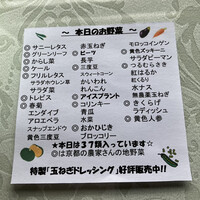 ～ 本日のお野菜 ～
◎サニーレタス
◎グリーンリーフ
◎からし菜
◎ケール
◎フリルレタス
サラダほうれん草
◎水菜
◎トレビス
◎春菊
エンダイブ
アロエベラ
スナップエンドウ
◎黄色人参
赤玉ねぎ
◎ビーツ
◎長芋
◎三度豆
スウィートコーン
かいわれ
れんこん
◎アイスプラント
◎コリンキー
◎青瓜
水菜
◎おかひじき
ブロッコリー
モロッコインゲン
◎黄色ズッキーニ
サラダビーマン
◎つるむらさき
紅はるか
◎紅くるり
水ナス
◎無農薬玉ねぎ
◎きくらげ
◎ラディッシュ
黄色人参
★本日は３７類入っています☆
◎は京都の農家さんの地野菜
特製「玉ねぎドレッシング」好評販売中!!